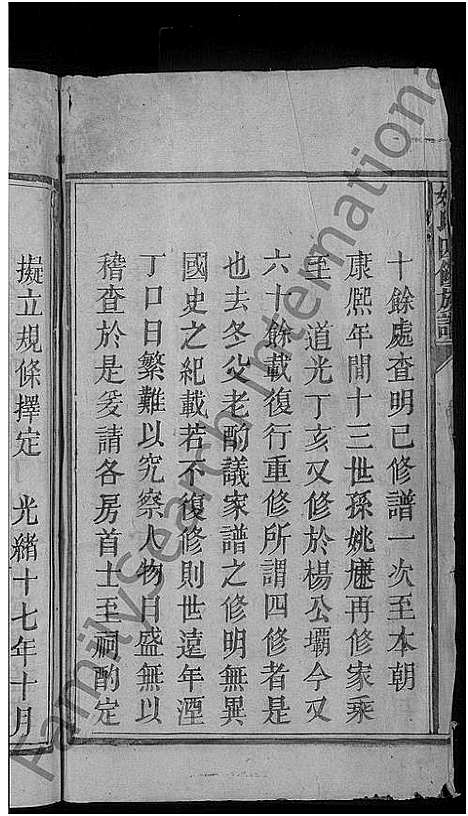 姚氏四修族譜
十餘處查明已修譜一次至本朝
康熙年間十三世孫姚㷂再修家乘
至　道光丁亥又修於楊公壩今又
六十餘載復行重修所謂四修者是
也去冬父老酌議家譜之修明無異
國史之紀載若不復修則世遠年湮
丁口日繁難以究察人物日盛無以
稽查於是爰請各房首士至祠酌定
擬立規條擇定　光緒十七年十月
FamilySearch International